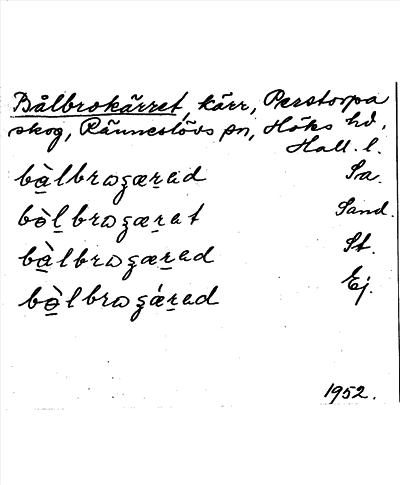 Bålbrokärret, kärr, Perstorpa
skog, Ränneslövs sn, Höks hd,
Hall. l.
bà̱lbrωʒæṟəd Sa.
bò̱ḻbrωʒæṟət Sand.
bà̱lbrωʒæṟəd St.
bò̱lbrωʒǽṟəd Ej.
1952.